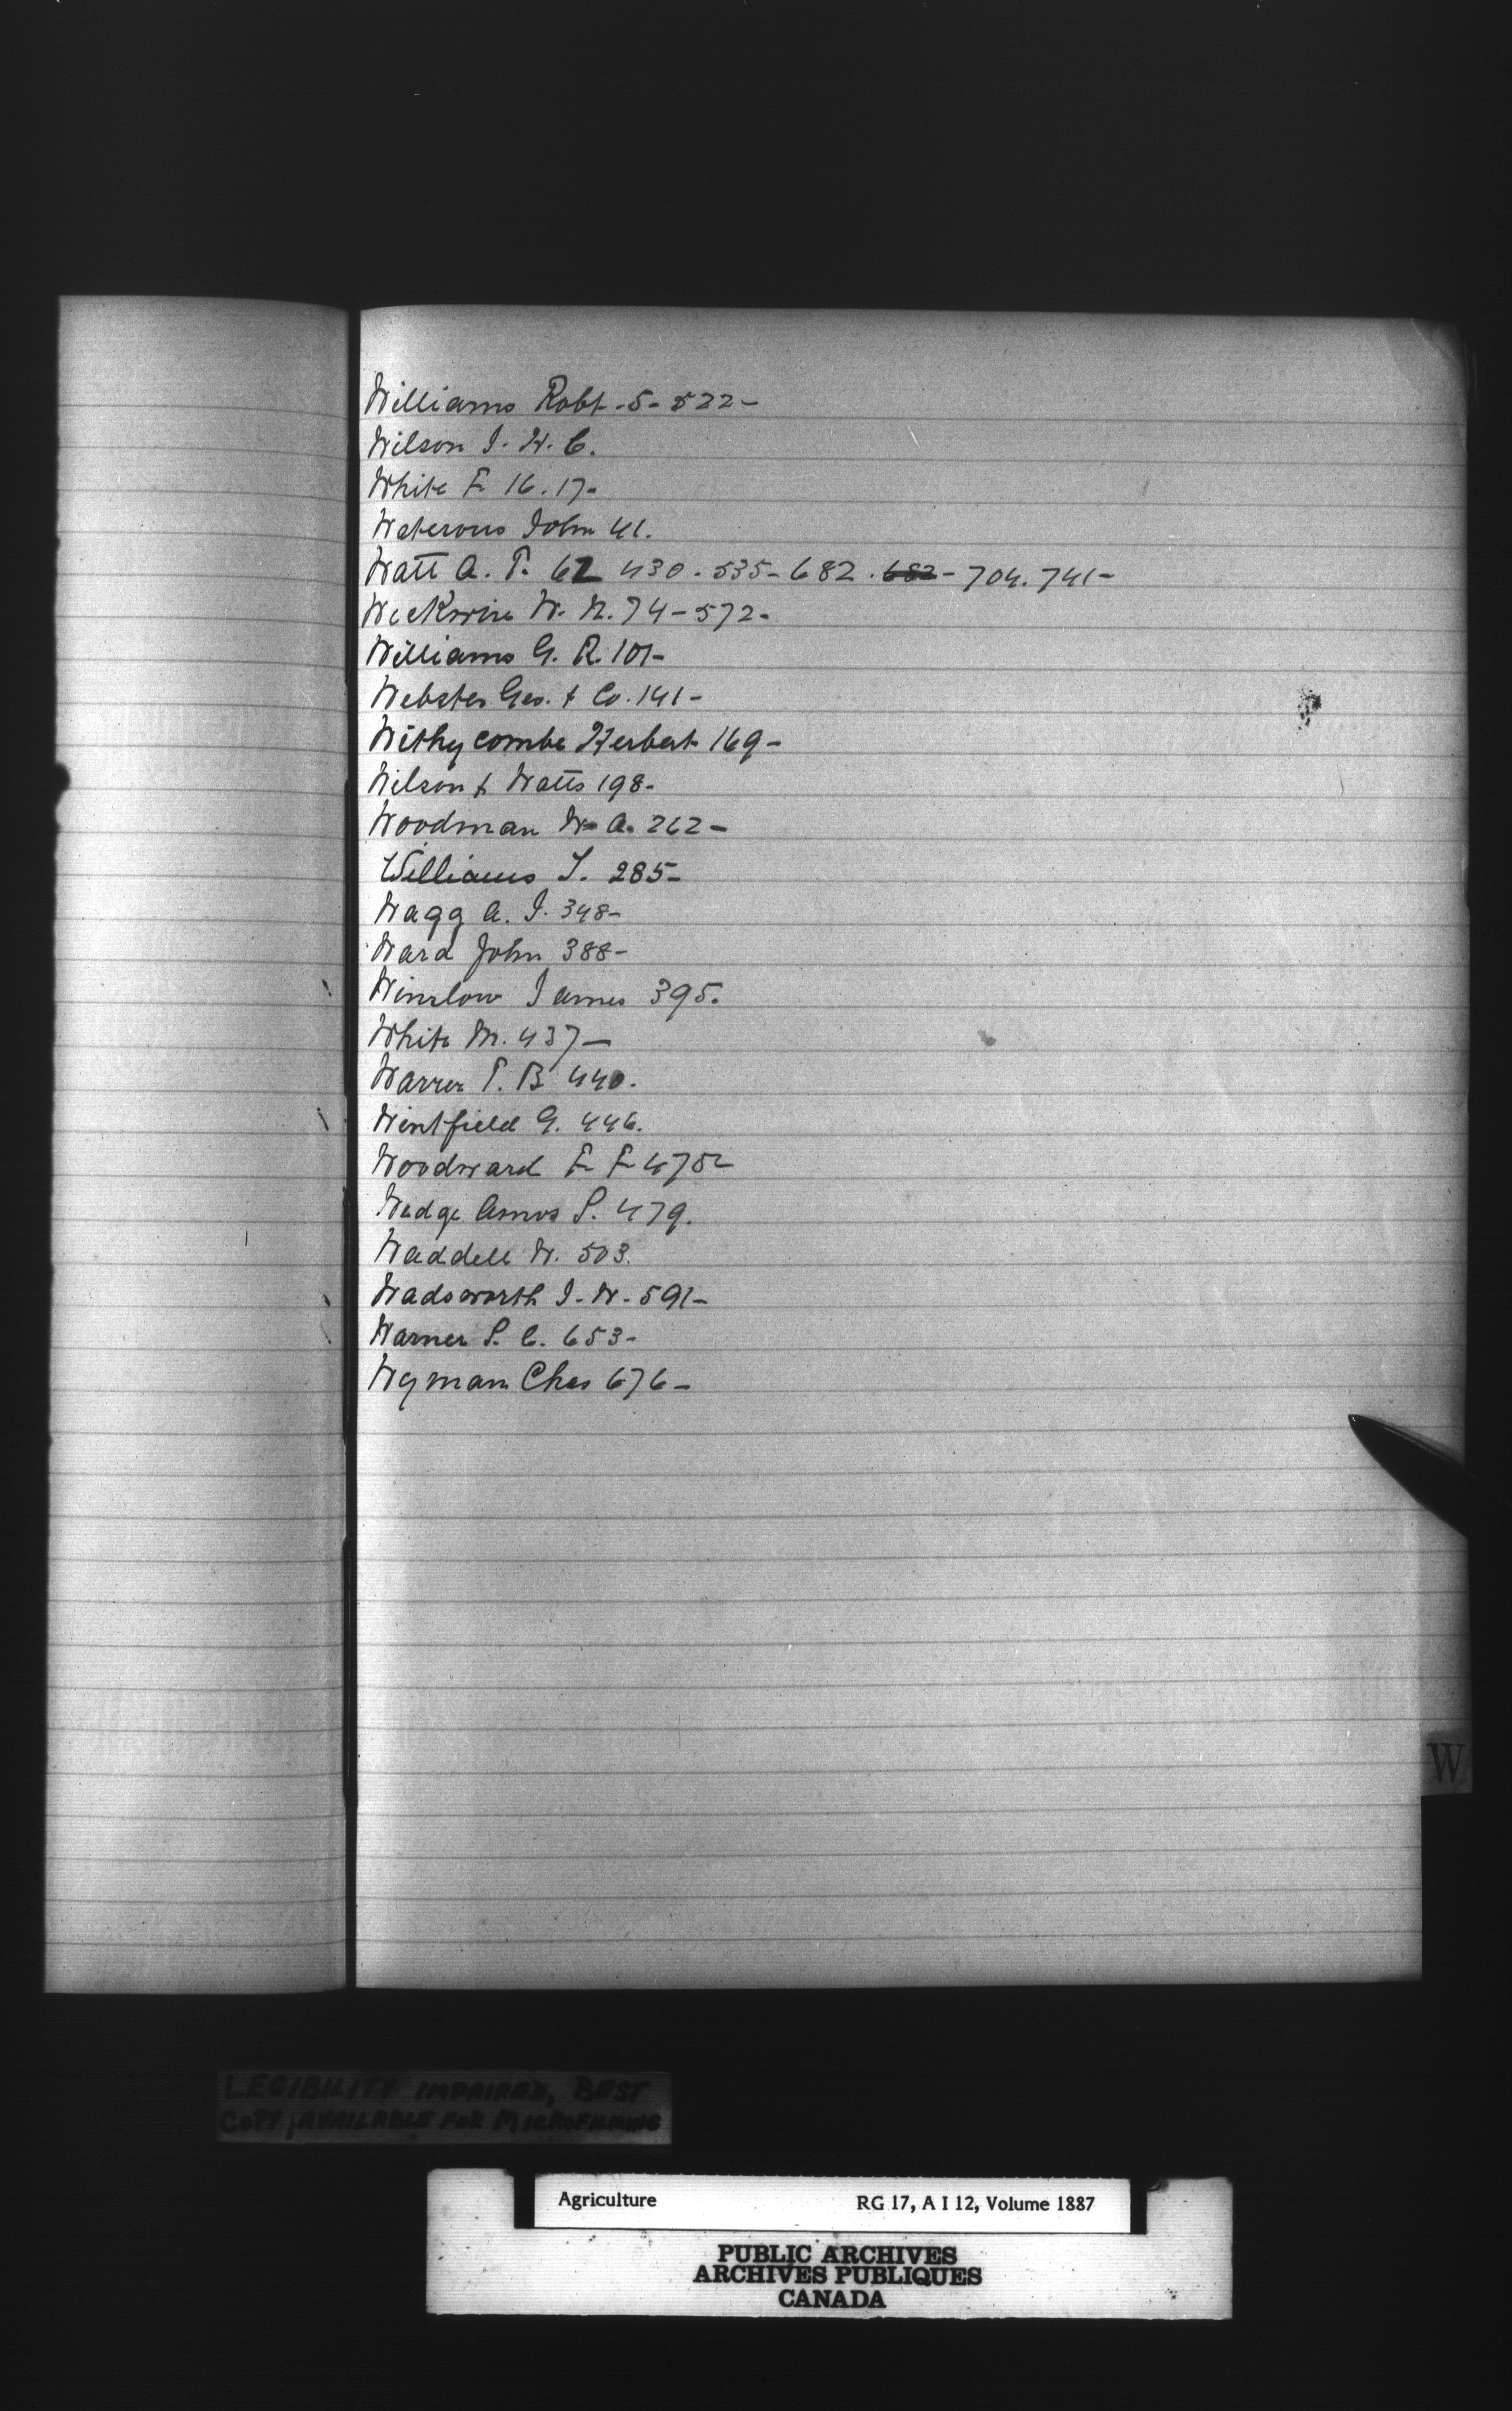 Williams Robt. 5. 522-
Wilson J. H. 6.
White F. 16. 17-
Waterous John 41.
Watt A. P. 62 430. 535- 682. 682- 704. 741-
Wickwire W. N. 74-572-
Williams G. R. 101-
Webster Geo. & Co. 141-
Withycombe Herbert 169-
Wilson & Watts 198-
Woodman W. A. 262-
Williams T. 285-
Wagg A. J. 348-
Ward John 388-
Winslow James 395.
White M. 437-
Warren T. B 440.
Wintfield G. 446.
Woodward F. F. 475-
Wedge Amos S. 479.
Waddell W. 503.
Wadsworth J. W. 591-
Warner S. C. 653-
Wyman Chas 676-
W
LEGIBILITY IMPAIRED, BEST
COPY AVAILABLE FOR MICROFILMING
Agriculture RG 17, A I 12, Volume 1887
PUBLIC ARCHIVES
ARCHIVES PUBLIQUES
CANADA